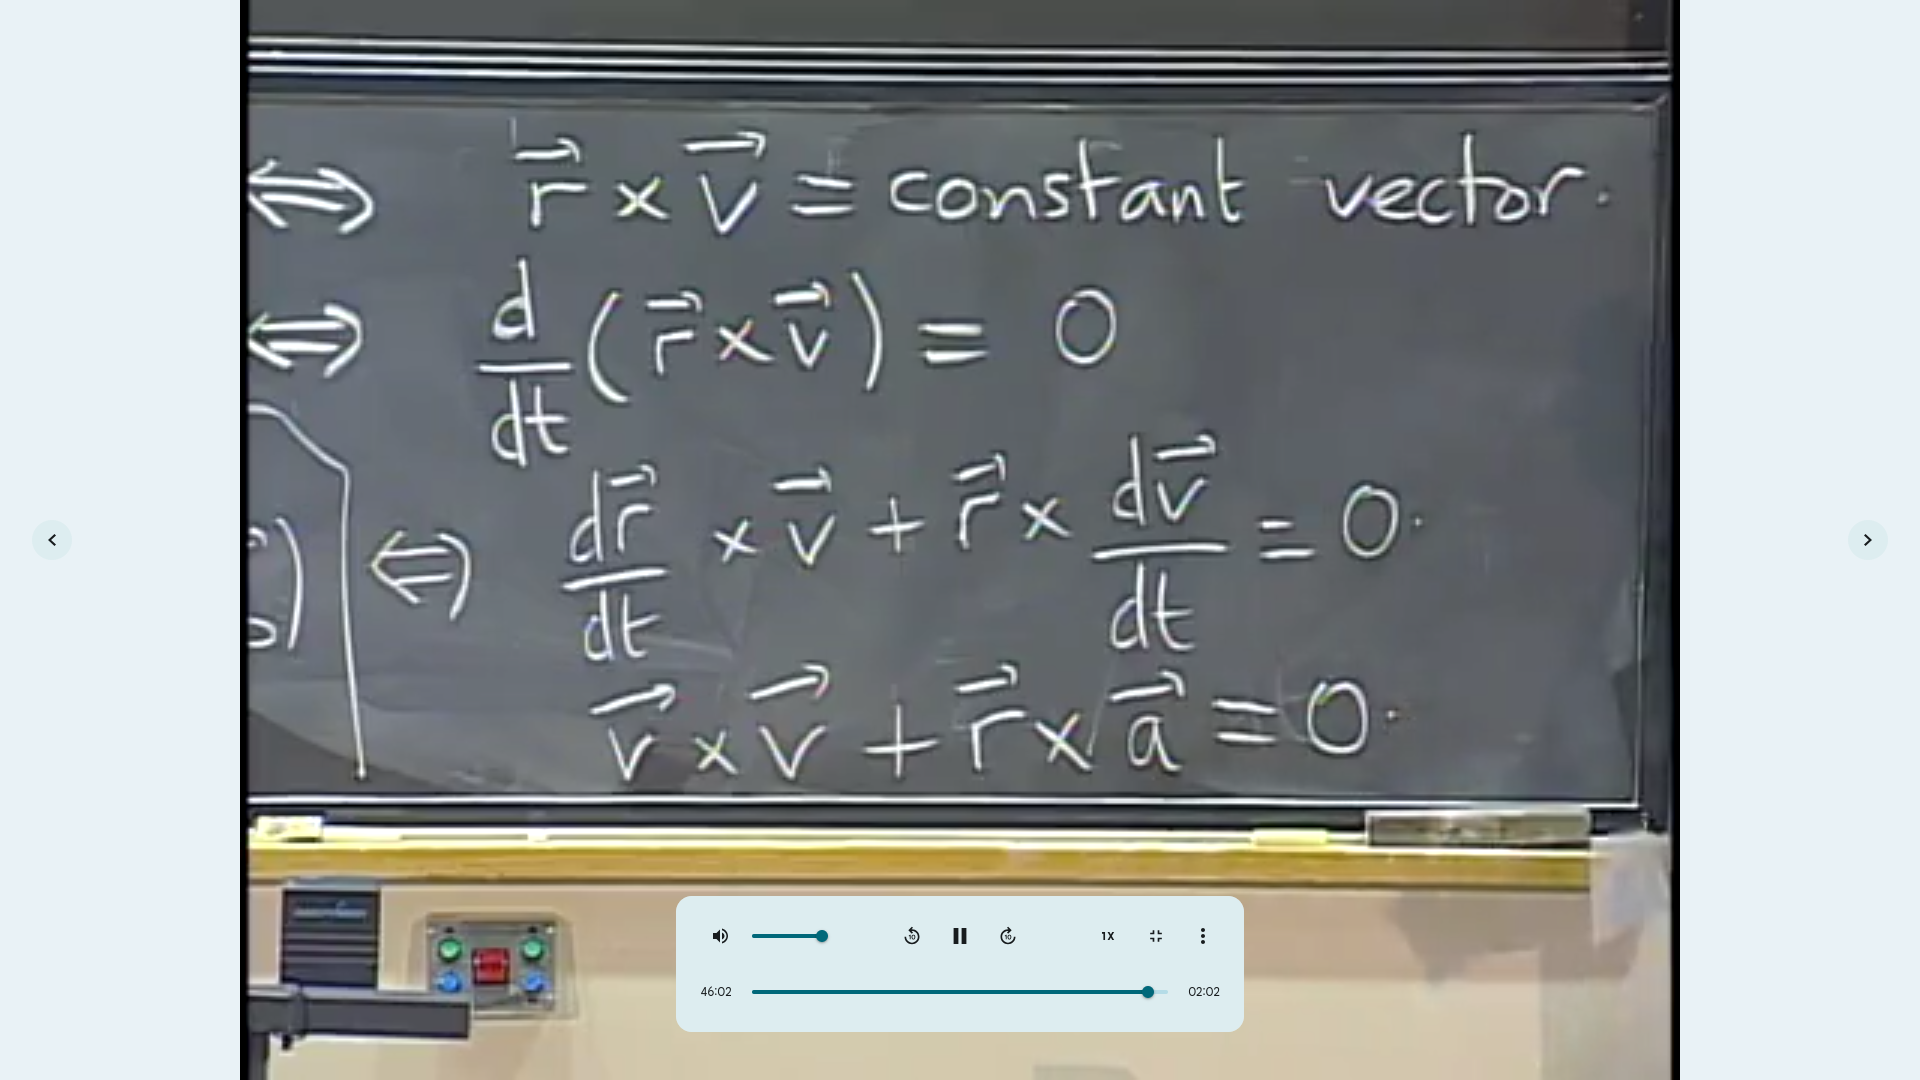 ⇔ r⃗ × v⃗ = constant vector.
⇔ d/dt (r⃗ × v⃗) = 0
⇔ dr⃗/dt × v⃗ + r⃗ × dv⃗/dt = 0.
v⃗ × v⃗ + r⃗ × a⃗ = 0.
10
10
1X
46:02
02:02